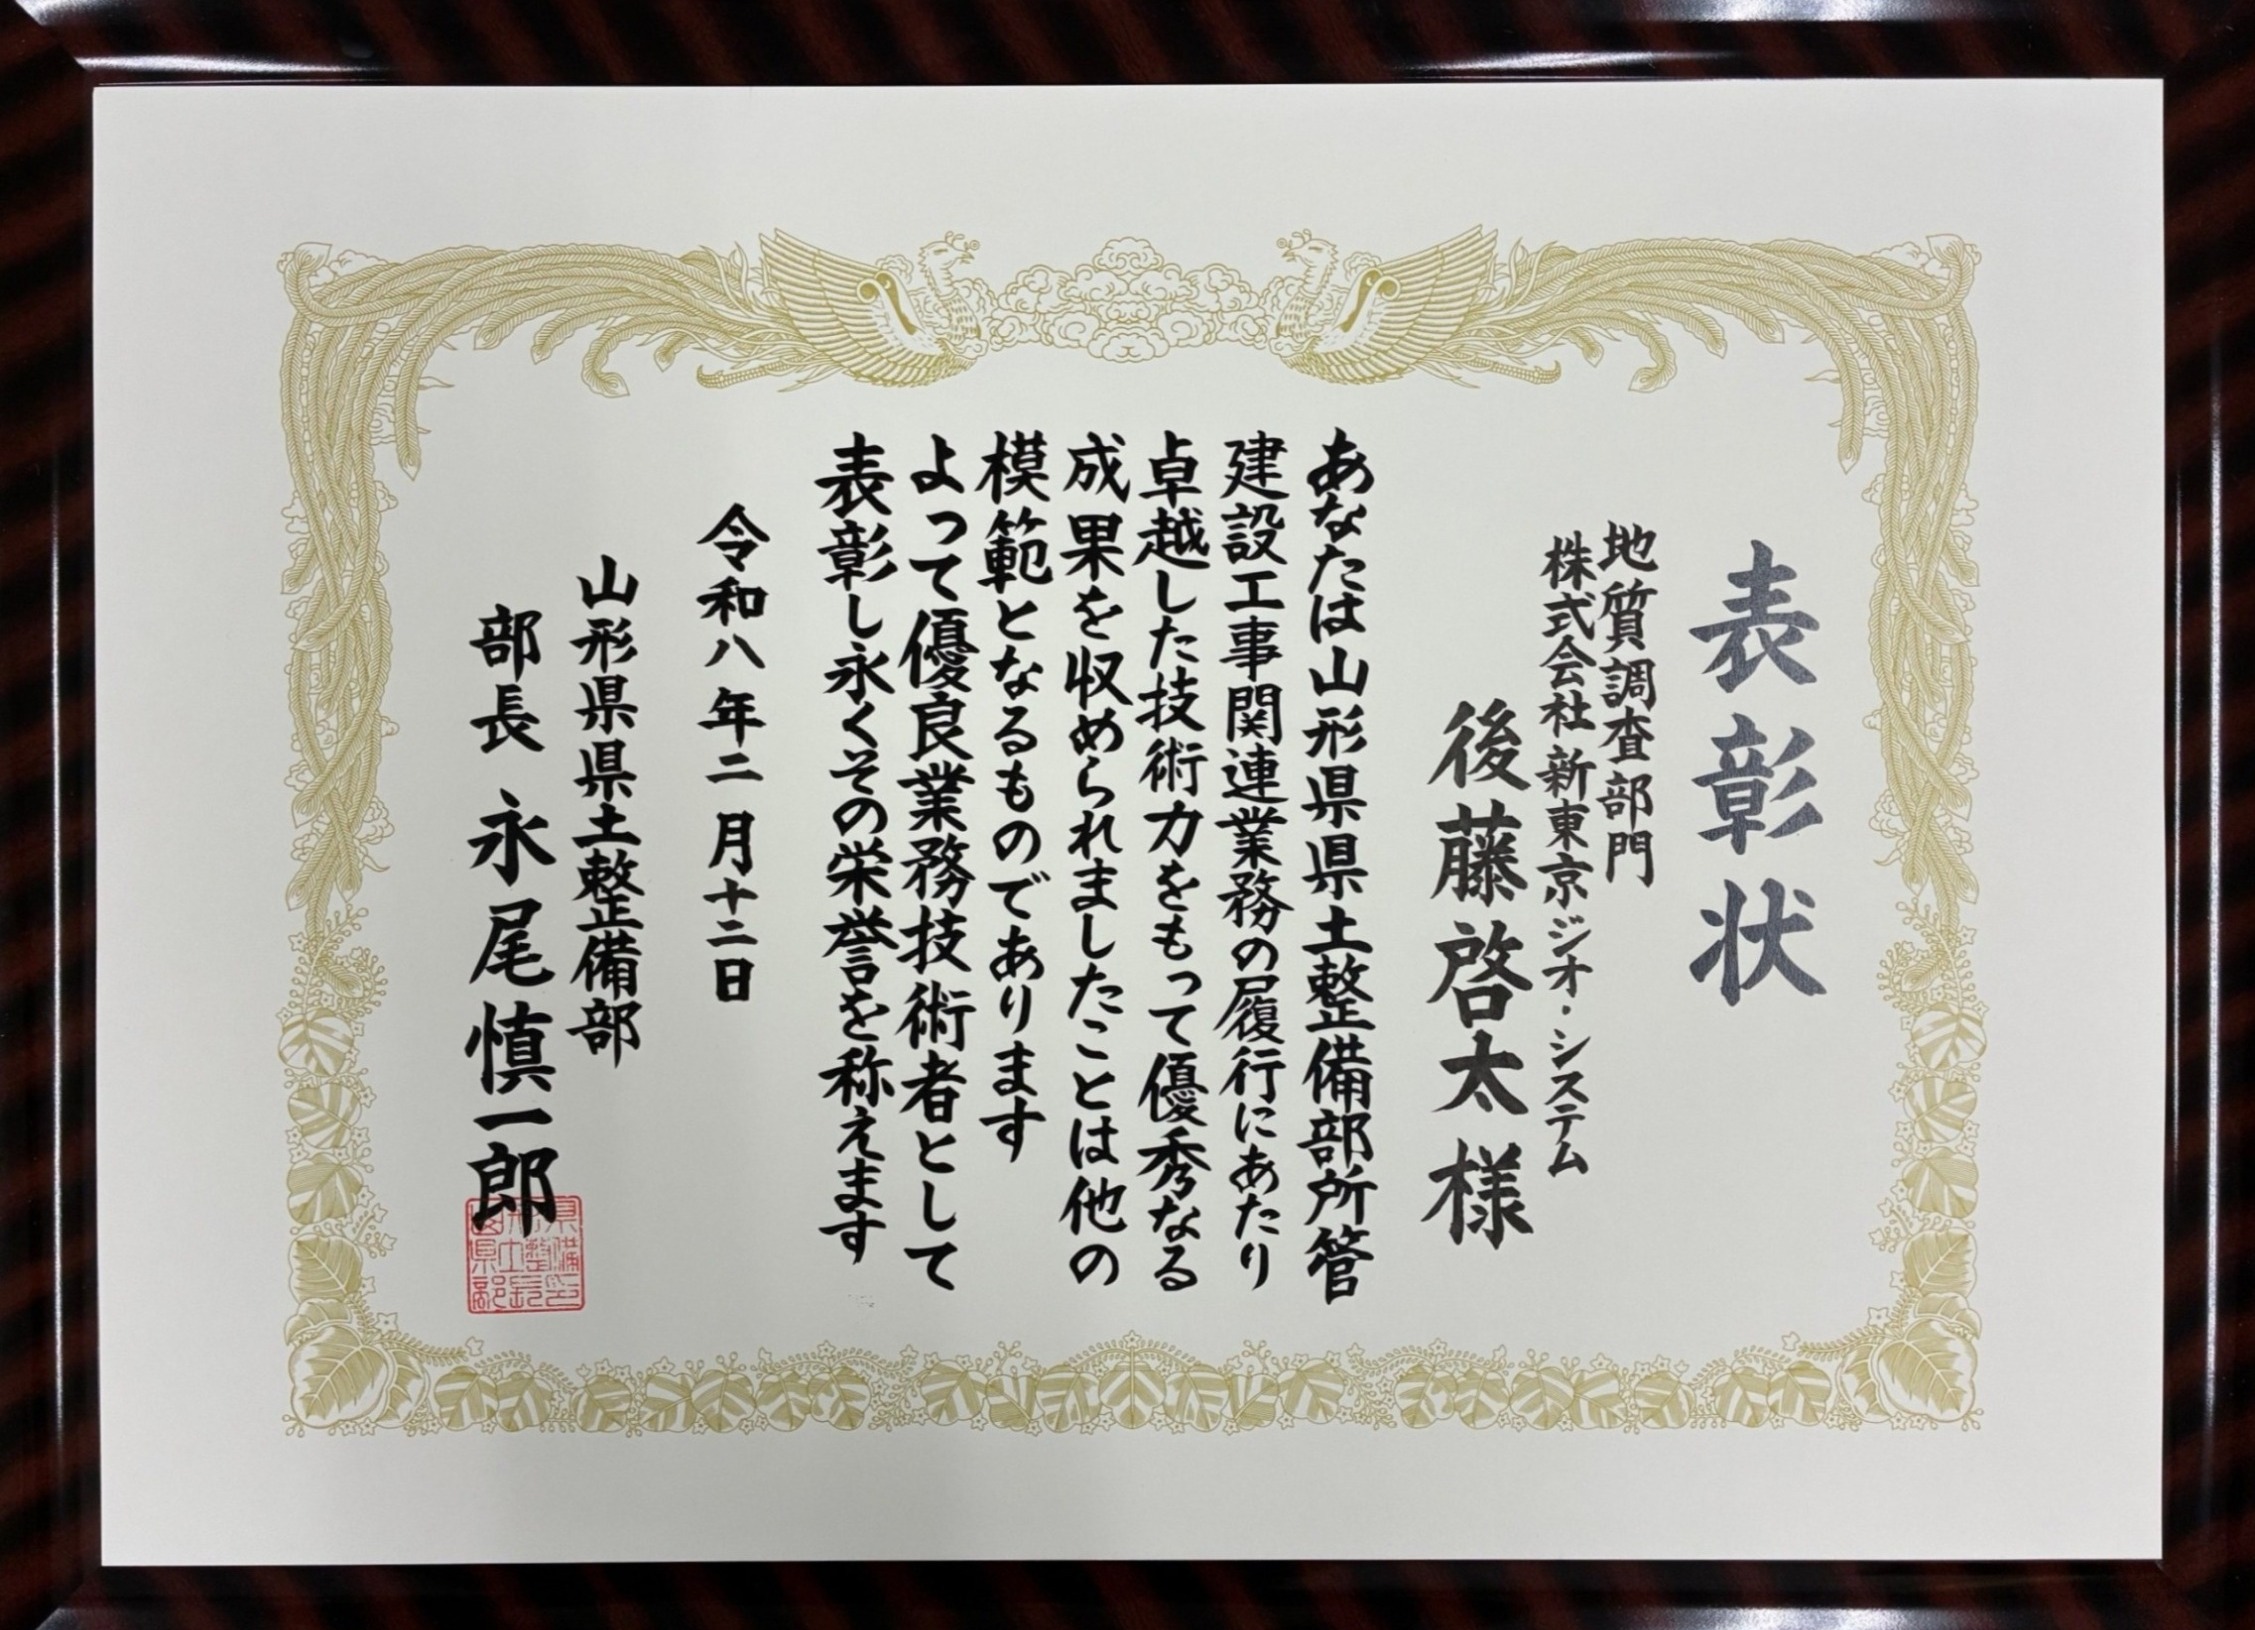 表彰状
地質調査部門
株式会社 新東京ジオ・システム
後藤啓太様
あなたは山形県県土整備部所管
建設工事関連業務の履行にあたり
卓越した技術力をもって優秀なる
成果を収められましたことは他の
模範となるものであります
よって優良業務技術者として
表彰し永くその栄誉を称えます
令和八年二月十二日
山形県県土整備部
部長 永尾慎一郎